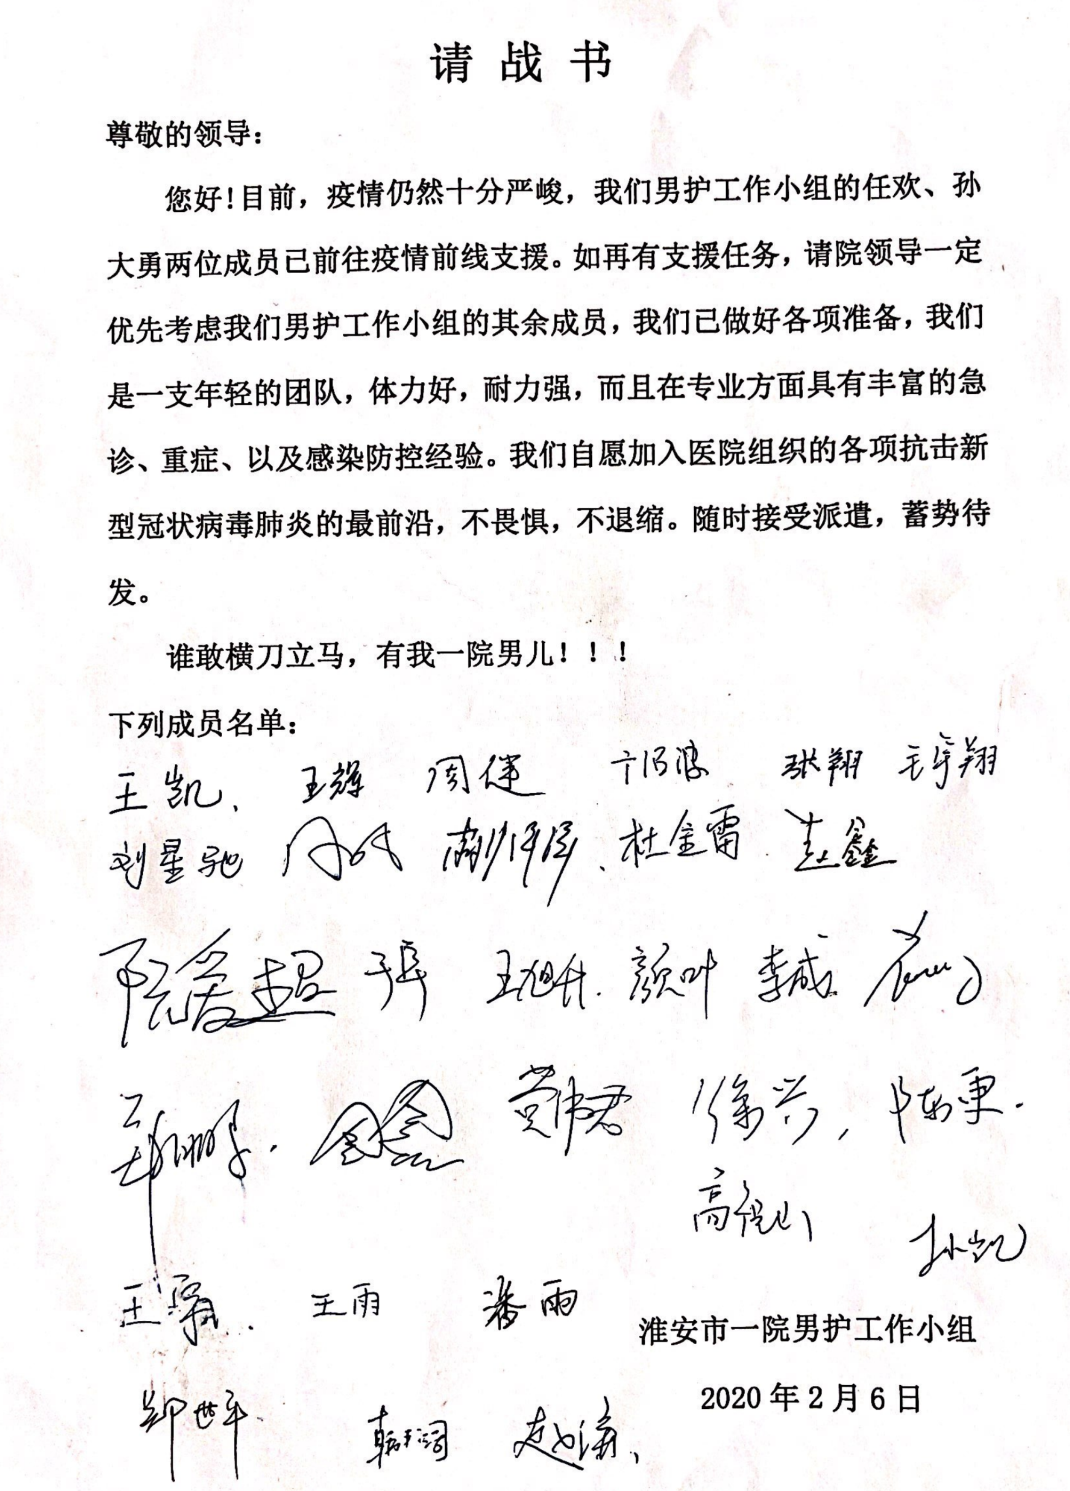 请战书
尊敬的领导：
您好！目前，疫情仍然十分严峻，我们男护工作小组的任欢、孙
大勇两位成员已前往疫情前线支援。如再有支援任务，请院领导一定
优先考虑我们男护工作小组的其余成员，我们已做好各项准备，我们
是一支年轻的团队，体力好，耐力强，而且在专业方面具有丰富的急
诊、重症、以及感染防控经验。我们自愿加入医院组织的各项抗击新
型冠状病毒肺炎的最前沿，不畏惧，不退缩。随时接受派遣，蓄势待
发。
谁敢横刀立马，有我一院男儿！！！
下列成员名单：
王凯、 王辉 周健 张翔
刘星驰 杜金雷 赵鑫
阮爱超 王旭升. 颜叶 李威.
郑鹏 徐兴， 陈更.
高
孙凯
王 王雨 潘雨
淮安市一院男护工作小组
2020年2月6日
郑世平. 韩 赵海、